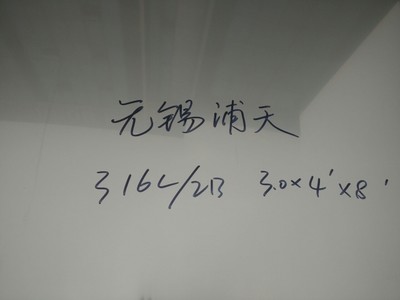 无锡浦天
316L/2B 3.0×4'×8'